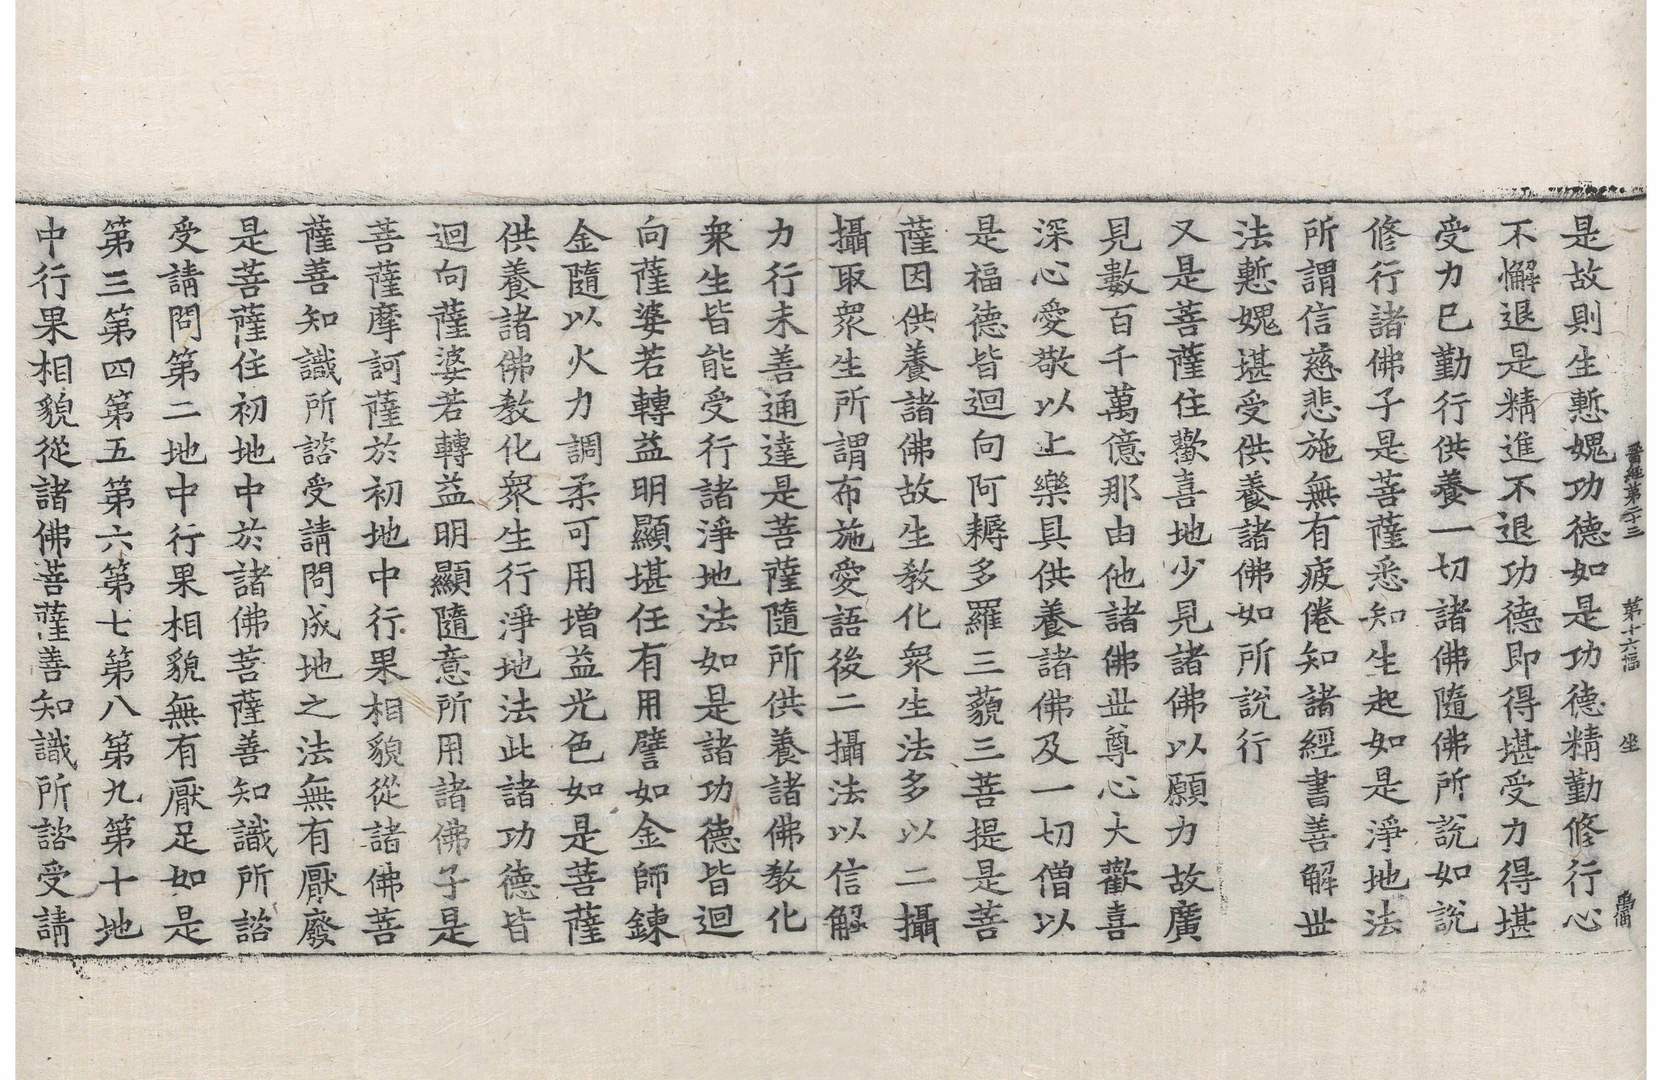 晉經第二十三　第十六幅　坐
是故則生慙愧功德如是功德精勤修行心
不懈退是精進不退功德即得堪受力得堪
受力已勤行供養一切諸佛隨佛所說如說
修行諸佛子是菩薩悉知生起如是淨地法
所謂信慈悲施無有疲倦知諸經書善解世
法慙愧堪受供養諸佛如所說行
又是菩薩住歡喜地少見諸佛以願力故廣
見數百千萬億那由他諸佛世尊心大歡喜
深心愛敬以上樂具供養諸佛及一切僧以
是福德皆迴向阿耨多羅三藐三菩提是菩
薩因供養諸佛故生教化眾生法多以二攝
攝取眾生所謂布施愛語後二攝法以信解
力行未善通達是菩薩隨所供養諸佛教化
眾生皆能受行諸淨地法如是諸功德皆迴
向薩婆若轉益明顯堪任有用譬如金師鍊
金隨以火力調柔可用增益光色如是菩薩
供養諸佛教化眾生行淨地法此諸功德皆
迴向薩婆若轉益明顯隨意所用諸佛子是
菩薩摩訶薩於初地中行果相貌從諸佛菩
薩善知識所諮受請問成地之法無有厭廢
是菩薩住初地中於諸佛菩薩善知識所諮
受請問第二地中行果相貌無有厭足如是
第三第四第五第六第七第八第九第十地
中行果相貌從諸佛菩薩善知識所諮受請